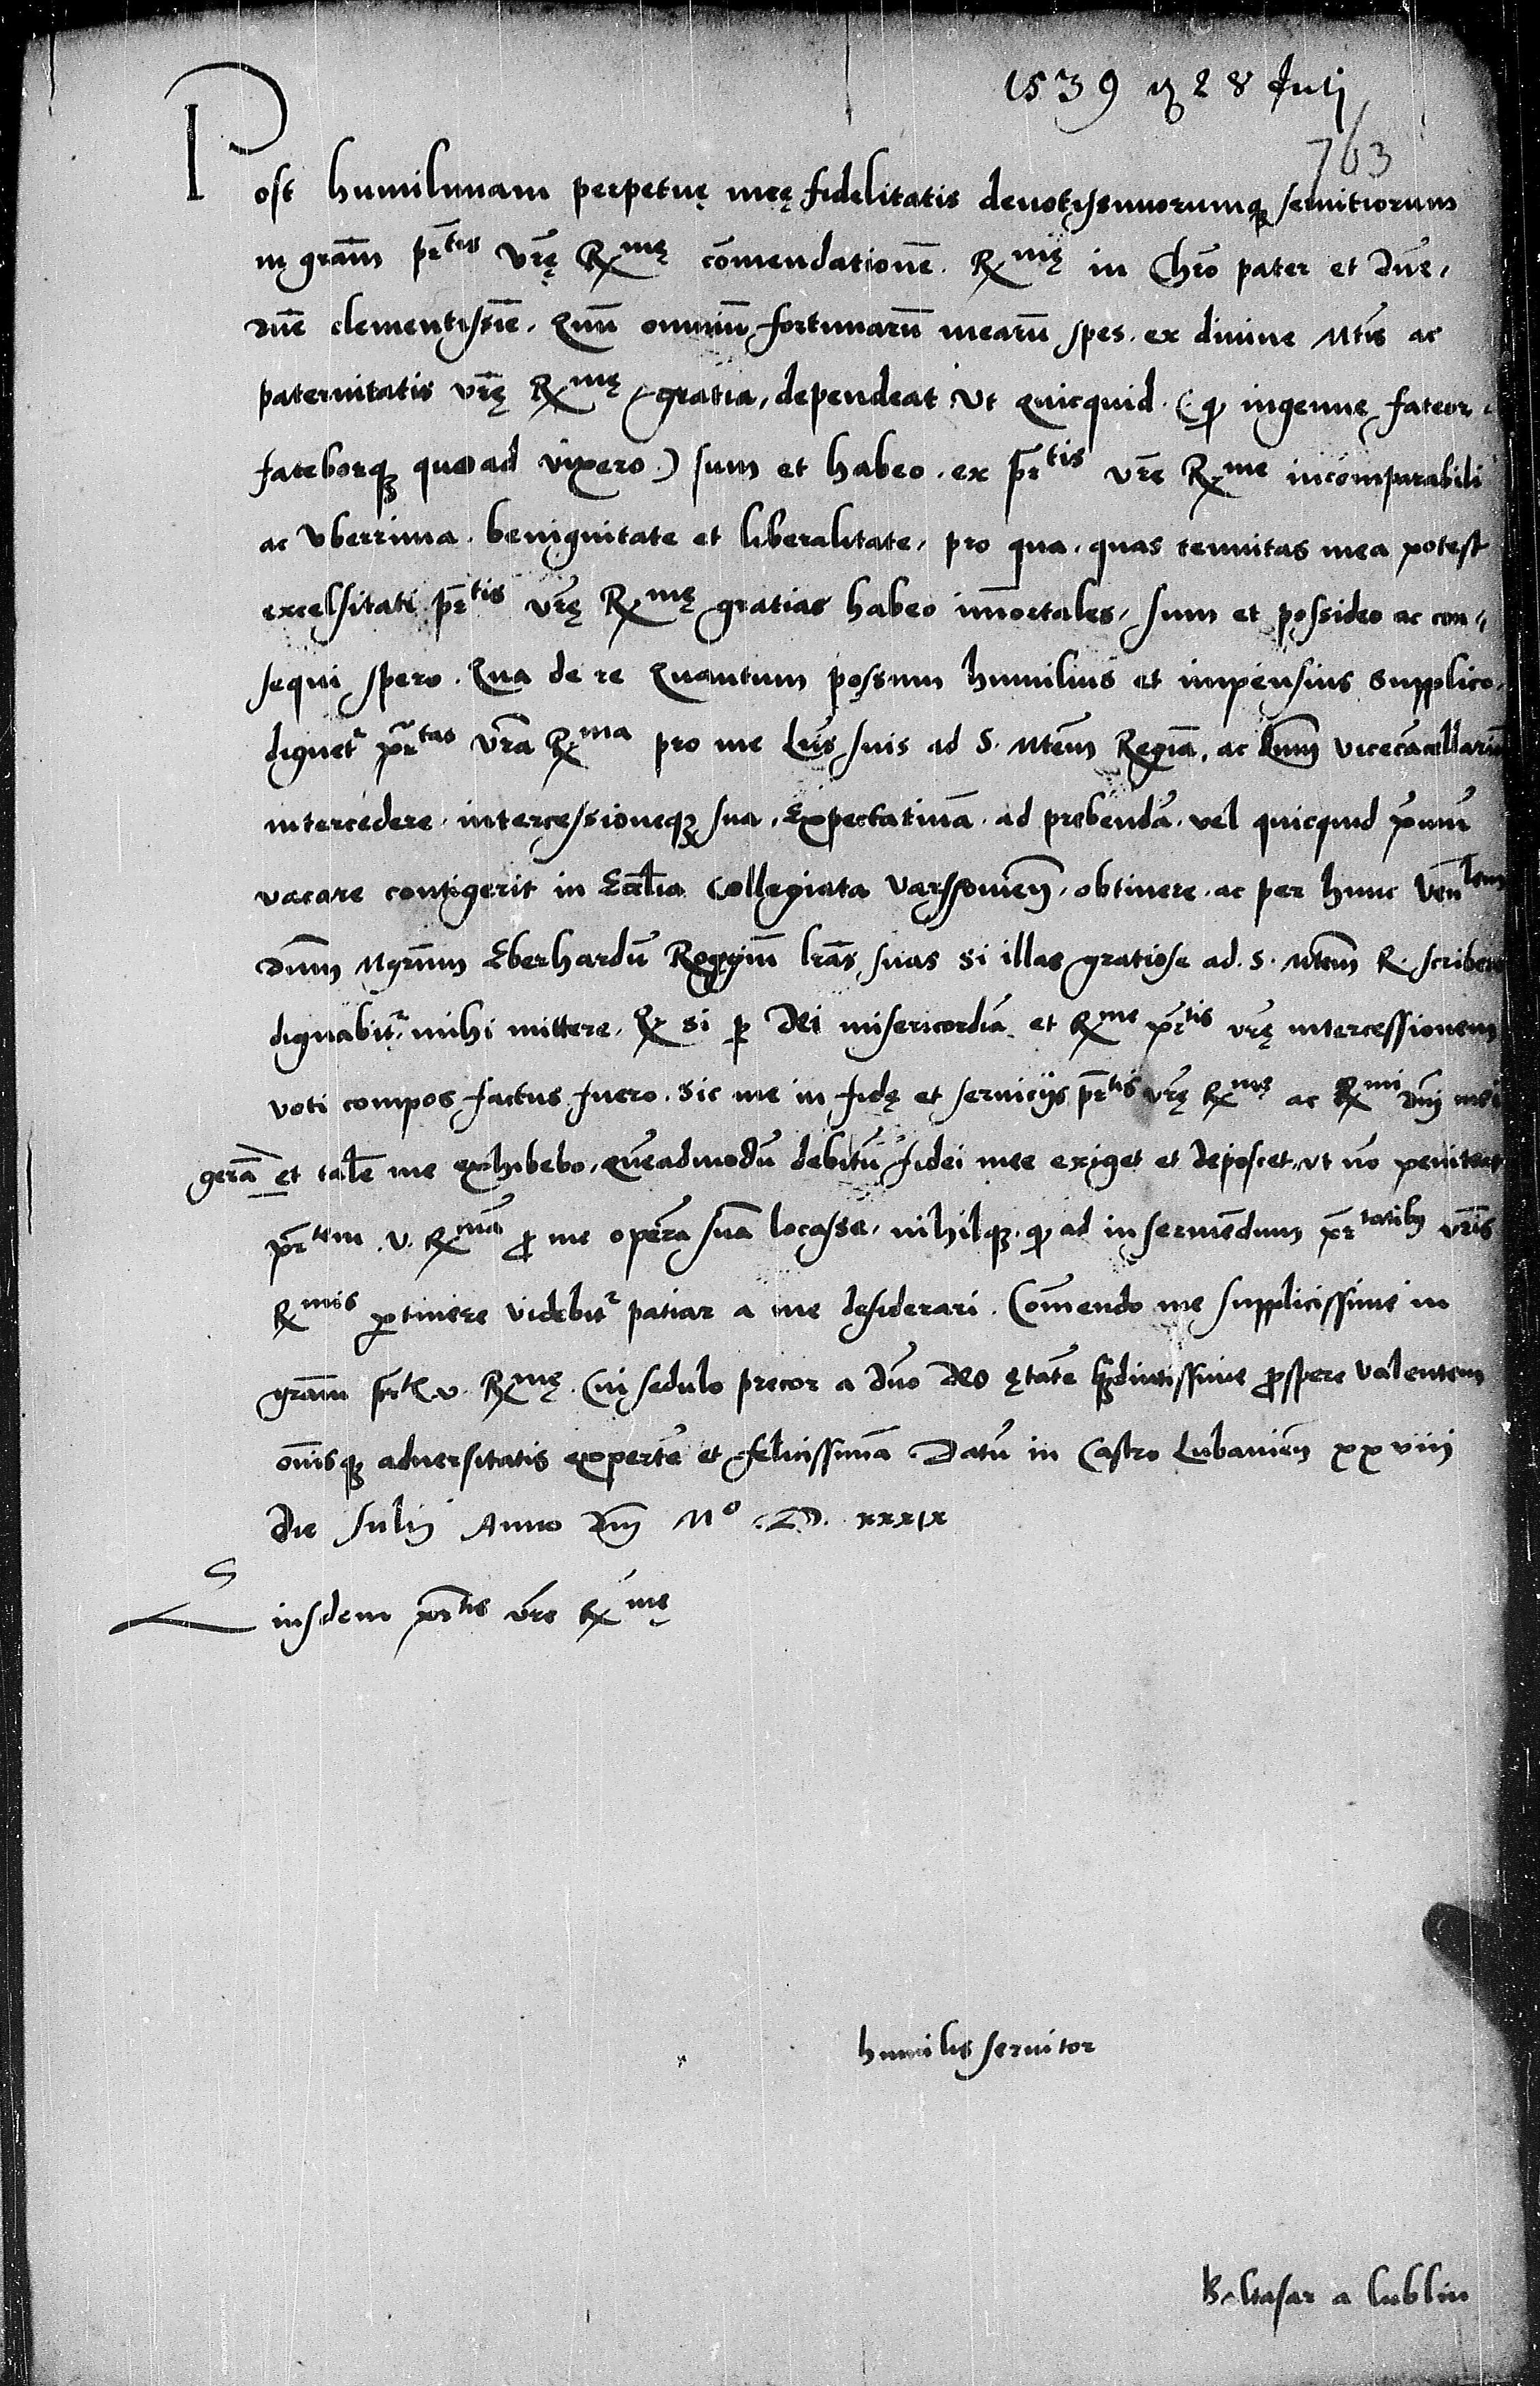 1539 28 Julj
763
Post humilimam perpetuę meę fidelitatis deuotissimorumq; seruitiorum
in grām pr̄tis vr̄ę Rxmę cōmendationē. Rxmę in Chrō pater et dn̄e,
dn̄e clementissīe. Quū omniū fortunarū mearū spes. ex diuine Mt̄is ac
paternitatis vr̄ę Rxmę gratia, dependeat vt quicquid. (: qͩ ingenuę fateor.
fateborq; quoad vixero.) sum et habeo. ex pr̄tis vr̄e Rxme incomparabili
ac vberrima. benignitate et liberalitate, pro qua. quas tenuitas mea potest
excelsitati pr̄tis vr̄ę Rxmę gratias habeo im̄ortales, sum et possideo ac con„
sequi spero. Qua de re Quantum possum humilius et impensius supplico.
dignetr pr̄tas vr̄a Rxma pro me Lr̄is suis ad S. Mt̄em Regiā, ac Dn̄m vicecācellariū
intercedere. intercessioneq; sua. Expectatiuā. ad prebendā. vel quicquid
vacare contigerit in Eccl̄ia Collegiata Varssouien̄. obtinere. ac per hunc Ven̄lem
dn̄m Mgr̄um Eberhardū Roggiū lrās suas si illas gratiose ad. S. Mt̄em R. scribere
dignabitr. mihi mittere. Qͩ si p̱ Dei misericordiā et Rxme pr̄tis vr̄ę intercessionem
voti compos factus fuero. Sic me in fidę et seruicijs pr̄tis vr̄ę Rxmę ac Rxmi dn̄i mei
gerā et talē me exhibebo, quēadmodū debitū fidei mee exiget et deposcet, vt nō peniteat
pr̄tem. v. Rxmā ꝓ me operā suā locasse, nihilq;. qͩ ad inseruiēdum pr̄tatibus vr̄is
Rxmis ꝑtinere videbitr patiar a me desiderari. Cōmendo me supplicissime in
grām pr̄tis v. Rxmę. Cui sedulo precor a dn̄o Deo ętatē q̄diutissime ꝓspere valentem
om̄isq; aduersitatis expertē et felicissimā. Datū in Castro Lubauien̄ xxviij
die Julij Anno Dn̄i Mo. D. xxxix
Eiusdem pr̄tis vr̄e Rxmę
humilis seruitor
Baltasar a lublin